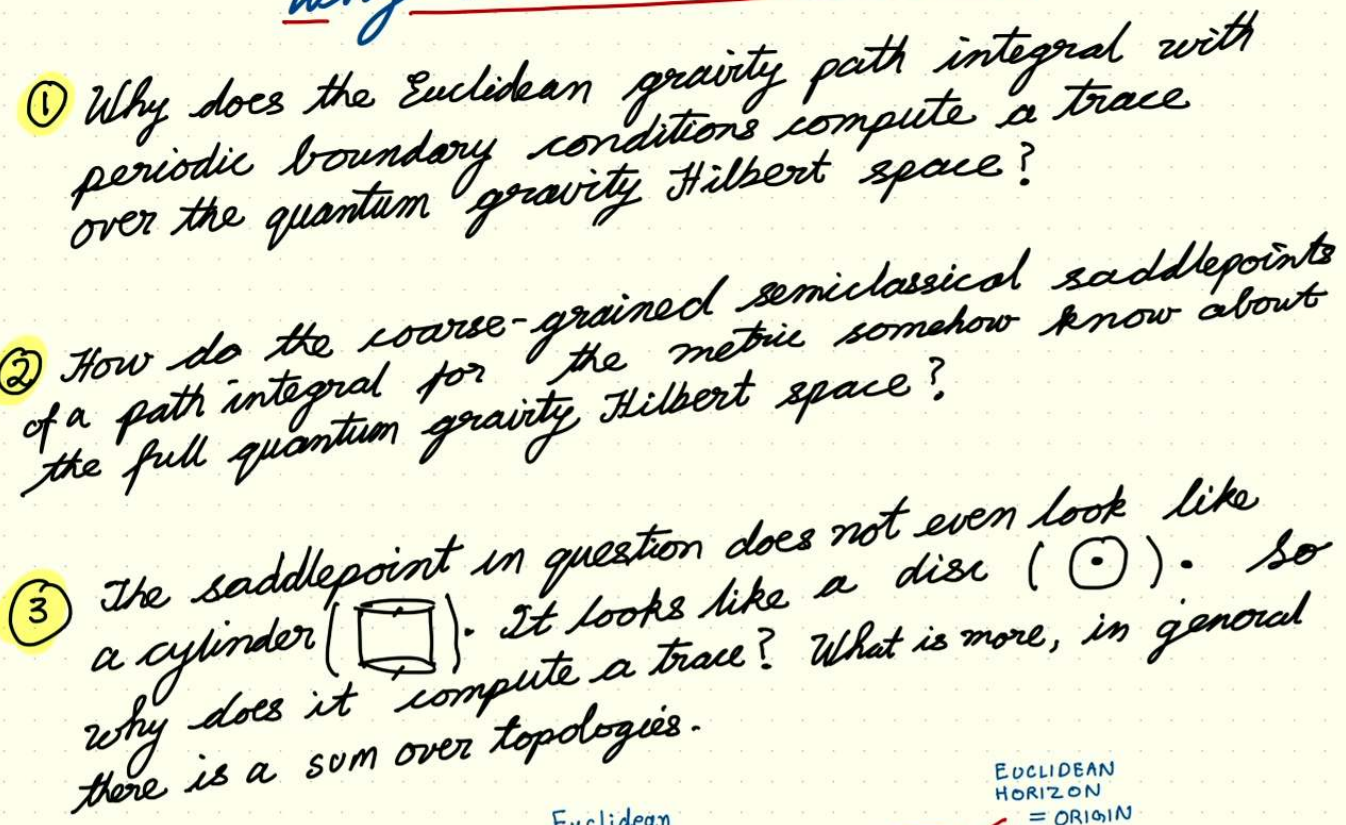 ① Why does the Euclidean gravity path integral with
periodic boundary conditions compute a trace
over the quantum gravity Hilbert space?
② How do the coarse-grained semiclassical saddlepoints
of a path integral for the metric somehow know about
the full quantum gravity Hilbert space?
③ The saddlepoint in question does not even look like
a cylinder ( ). It looks like a disc ( ). So
why does it compute a trace? What is more, in general
there is a sum over topologies.
EUCLIDEAN
HORIZON
= ORIGIN
Euclidean